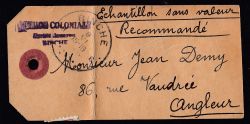 Echantillon sans valeur
Recommandé
BINCHE
Monsieur Jean Demy
86, rue Vaudrée
Angleur